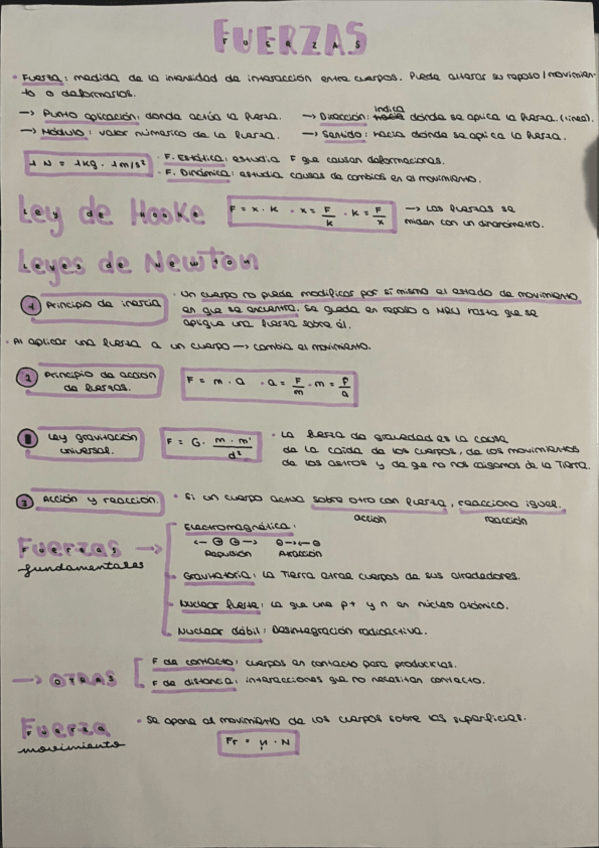 FUERZAS
· Fuerza: medida de la intensidad de interacción entre cuerpos. Puede alterar su reposo/movimien-
to o deformarlos.
→ Punto aplicación: donde actúa la fuerza.
→ Dirección: indica dónde se aplica la fuerza. (línea).
→ Módulo: valor numérico de la fuerza.
→ Sentido: hacia dónde se aplica la fuerza.
1 N = 1kg · 1m/s²
· F. Estática: estudia F que causan deformaciones.
· F. Dinámica: estudia causas de cambios en el movimiento.
Ley de Hooke
F = x · k · x = F/k · k = F/x
→ Las fuerzas se
miden con un dinamómetro.
Leyes de Newton
1 Principio de inercia
· Un cuerpo no puede modificar por sí mismo el estado de movimiento
en que se encuentra. Se queda en reposo o MRU hasta que se
aplique una fuerza sobre él.
· Al aplicar una fuerza a un cuerpo → cambia el movimiento.
2 Principio de acción
de fuerzas.
F = m · a · a = F/m · m = F/a
Ley gravitación
universal.
F = G · m · m'/d²
· La fuerza de gravedad es la causa
de la caída de los cuerpos, de los movimientos
de los astros y de que no nos caigamos de la Tierra.
3 Acción y reacción.
· Si un cuerpo actúa sobre otro con fuerza, reacciona igual.
acción
reacción
Fuerzas →
fundamentales
Electromagnética:
← ⊕ ⊕ →
⊕→←⊖
Repulsión
Atracción
Gravitatoria: La Tierra atrae cuerpos de sus alrededores.
Nuclear fuerte: La que une p+ y n en núcleo atómico.
Nuclear débil: Desintegración radioactiva.
→ OTRAS
F de contacto: cuerpos en contacto para producirlas.
F de distancia: interacciones que no necesitan contacto.
Fuerza
movimiento
· Se opone al movimiento de los cuerpos sobre las superficies.
Fr = μ · N